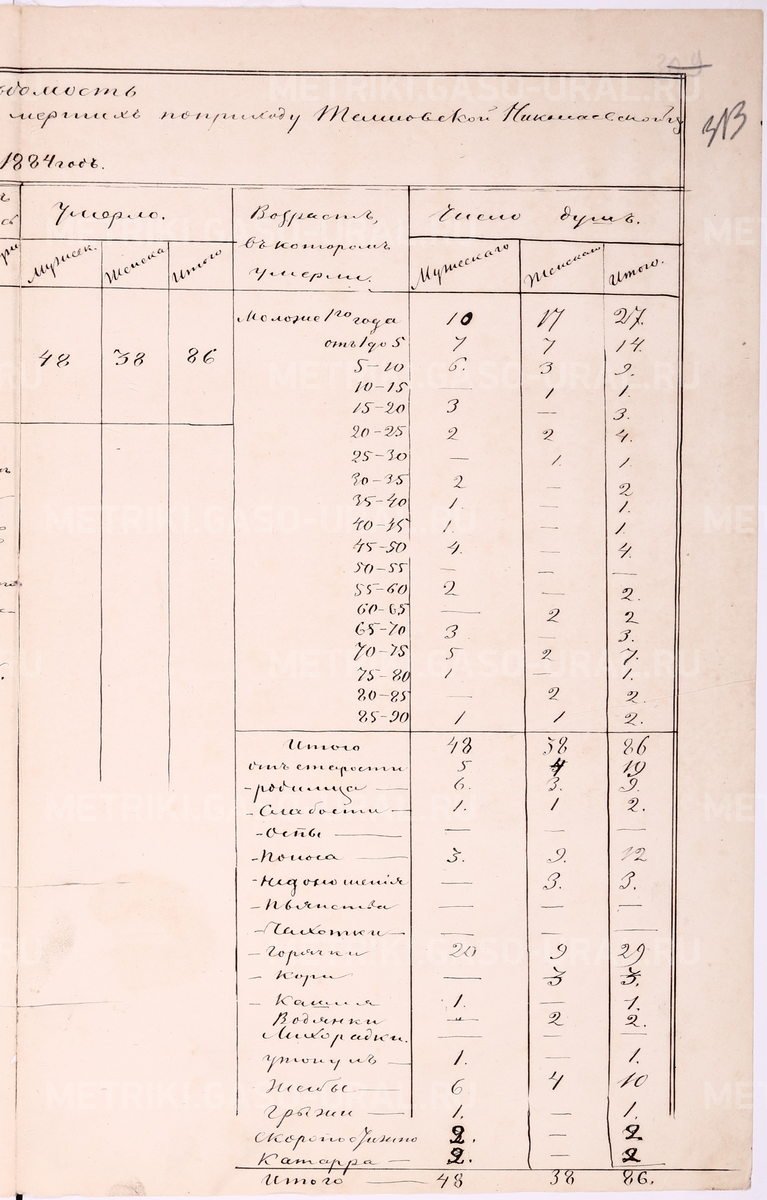 METRIKI.GASO-URAL.RU
вѣдомость
313
мершихъ по приходу Темновской Николаевской ц
1884 годъ.
Умерло. Возрастъ, Число душъ.
въ которомъ
Мужеск. Женска Итого умерли. Мужескаго Женскаго Итого.
Моложе 1го года 10 17 27.
48 38 86 отъ 1 до 5 7 7 14.
5-10 6. 3 9.
10-15 — 1 1.
15-20 3 — 3.
20-25 2 2 4.
25-30 — 1. 1.
30-35 2 — 2
35-40 1. — 1.
40-45 1. — 1.
45-50 4. — 4.
50-55 — — —
55-60 2 — 2.
60-65 — 2 2
65-70 3 — 3.
70-75 5 2 7.
75-80 1 — 1.
80-85 — 2 2.
85-90 1 1 2.
Итого 48 38 86
отъ старости 5 4 19
- родимца — 6. 3. 9.
- Слабости — 1. 1 2.
- Оспы — — — —
- Поноса — 3. 9. 12
- недоношенія — 3. 3.
- Пьянства — — —
- Чахотки — — — —
- Горячки 20 9 29
- Кори — 3 3.
- Кашля 1. — 1.
Водянки — 2 2.
Лихорадки. — — —
утонулъ — 1. — 1.
Жабы — 6 4 10
грыжи — 1. — 1.
скоропостижно 2. — 2
Катарра — 2. — 2
Итого — 48 38 86.